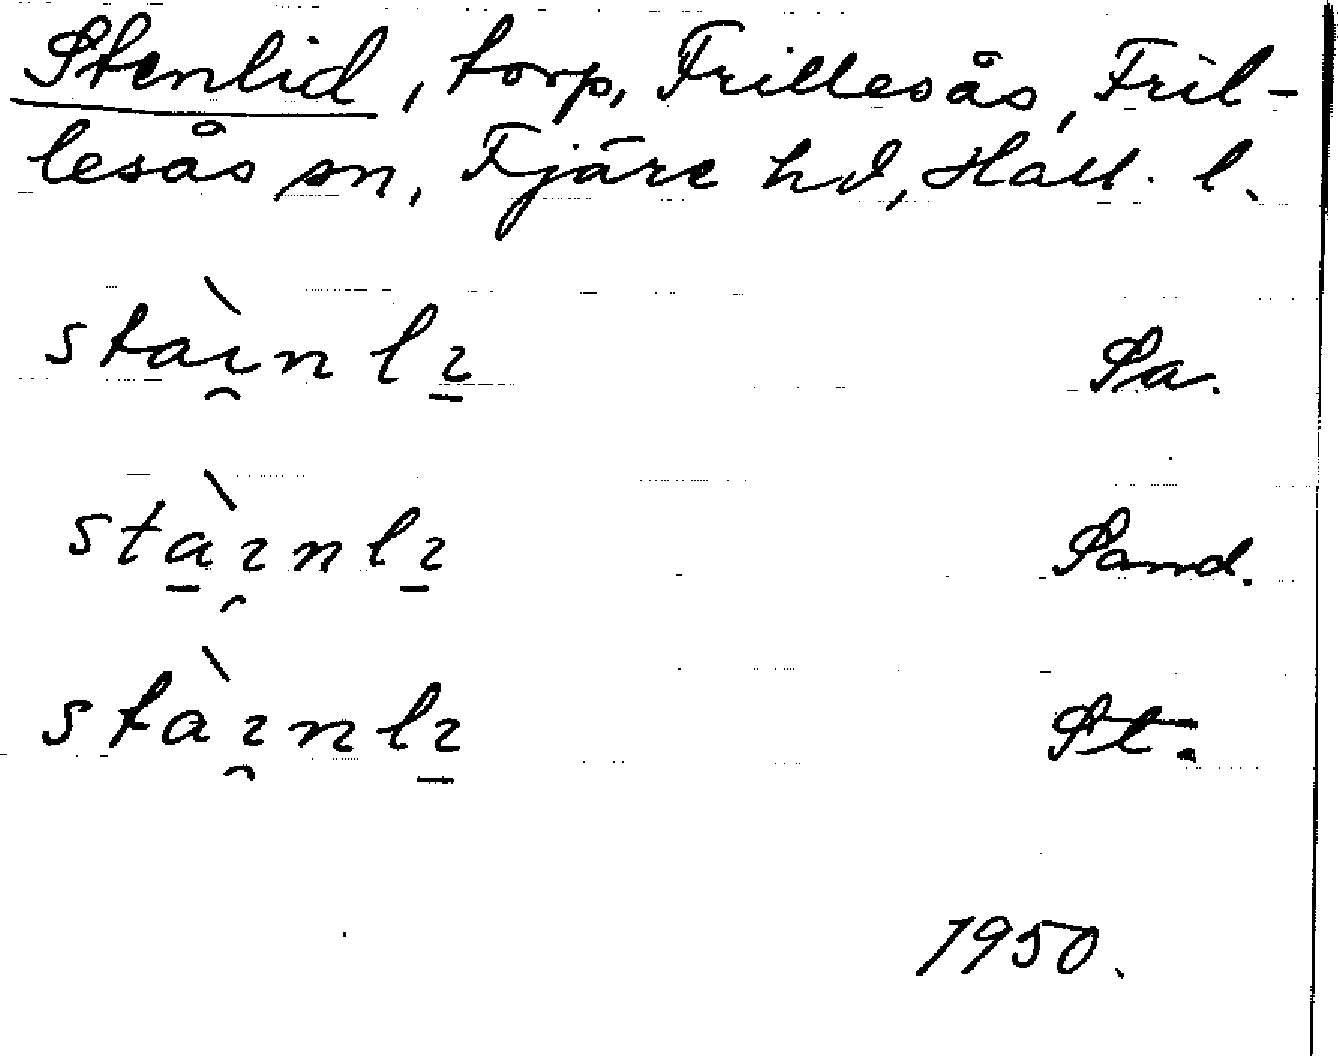 Stenlid, torp, Frillesås, Fril-
lesås sn, Fjäre hd, Hall. l.
stàɪ̯nlɪ̠ Sa.
stà̠ɪ̯nlɪ̠ Sand.
stàɪ̯nlɪ̠ St.
1950.